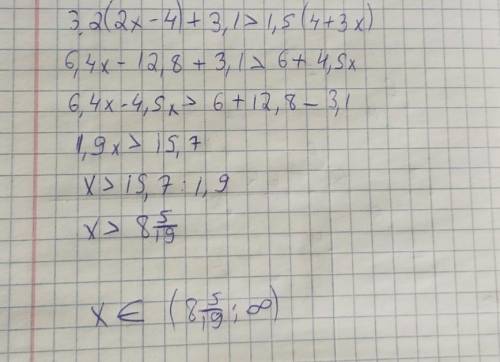 3,2(2x-4)+3,1>1,5(4+3x)
6,4x-12,8+3,1>6+4,5x
6,4x-4,5x>6+12,8-3,1
1,9x>15,7
x>15,7:1,9
x>8 5/19
x∈(8 5/19;∞)